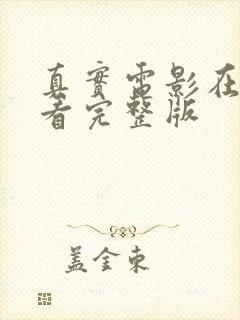 真實電影在
看完整版
盖金東